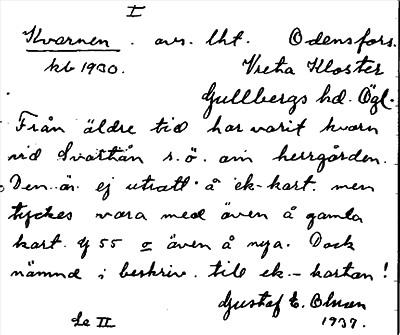 I
Kvarnen. avs. lht. Odensfors.
kb 1930. Vreta Kloster
Gullbergs hd. Ögl.
Från äldre tid har varit kvarn
vid Svartån s.ö. om herrgården.
Den är ej utsatt å ek-kart. men
tyckes vara med även å gamla
kart. y 55 o även å nya. Dock
nämnd i beskriv. till ek.-kartan!
Gustaf E.
Se II 1937.